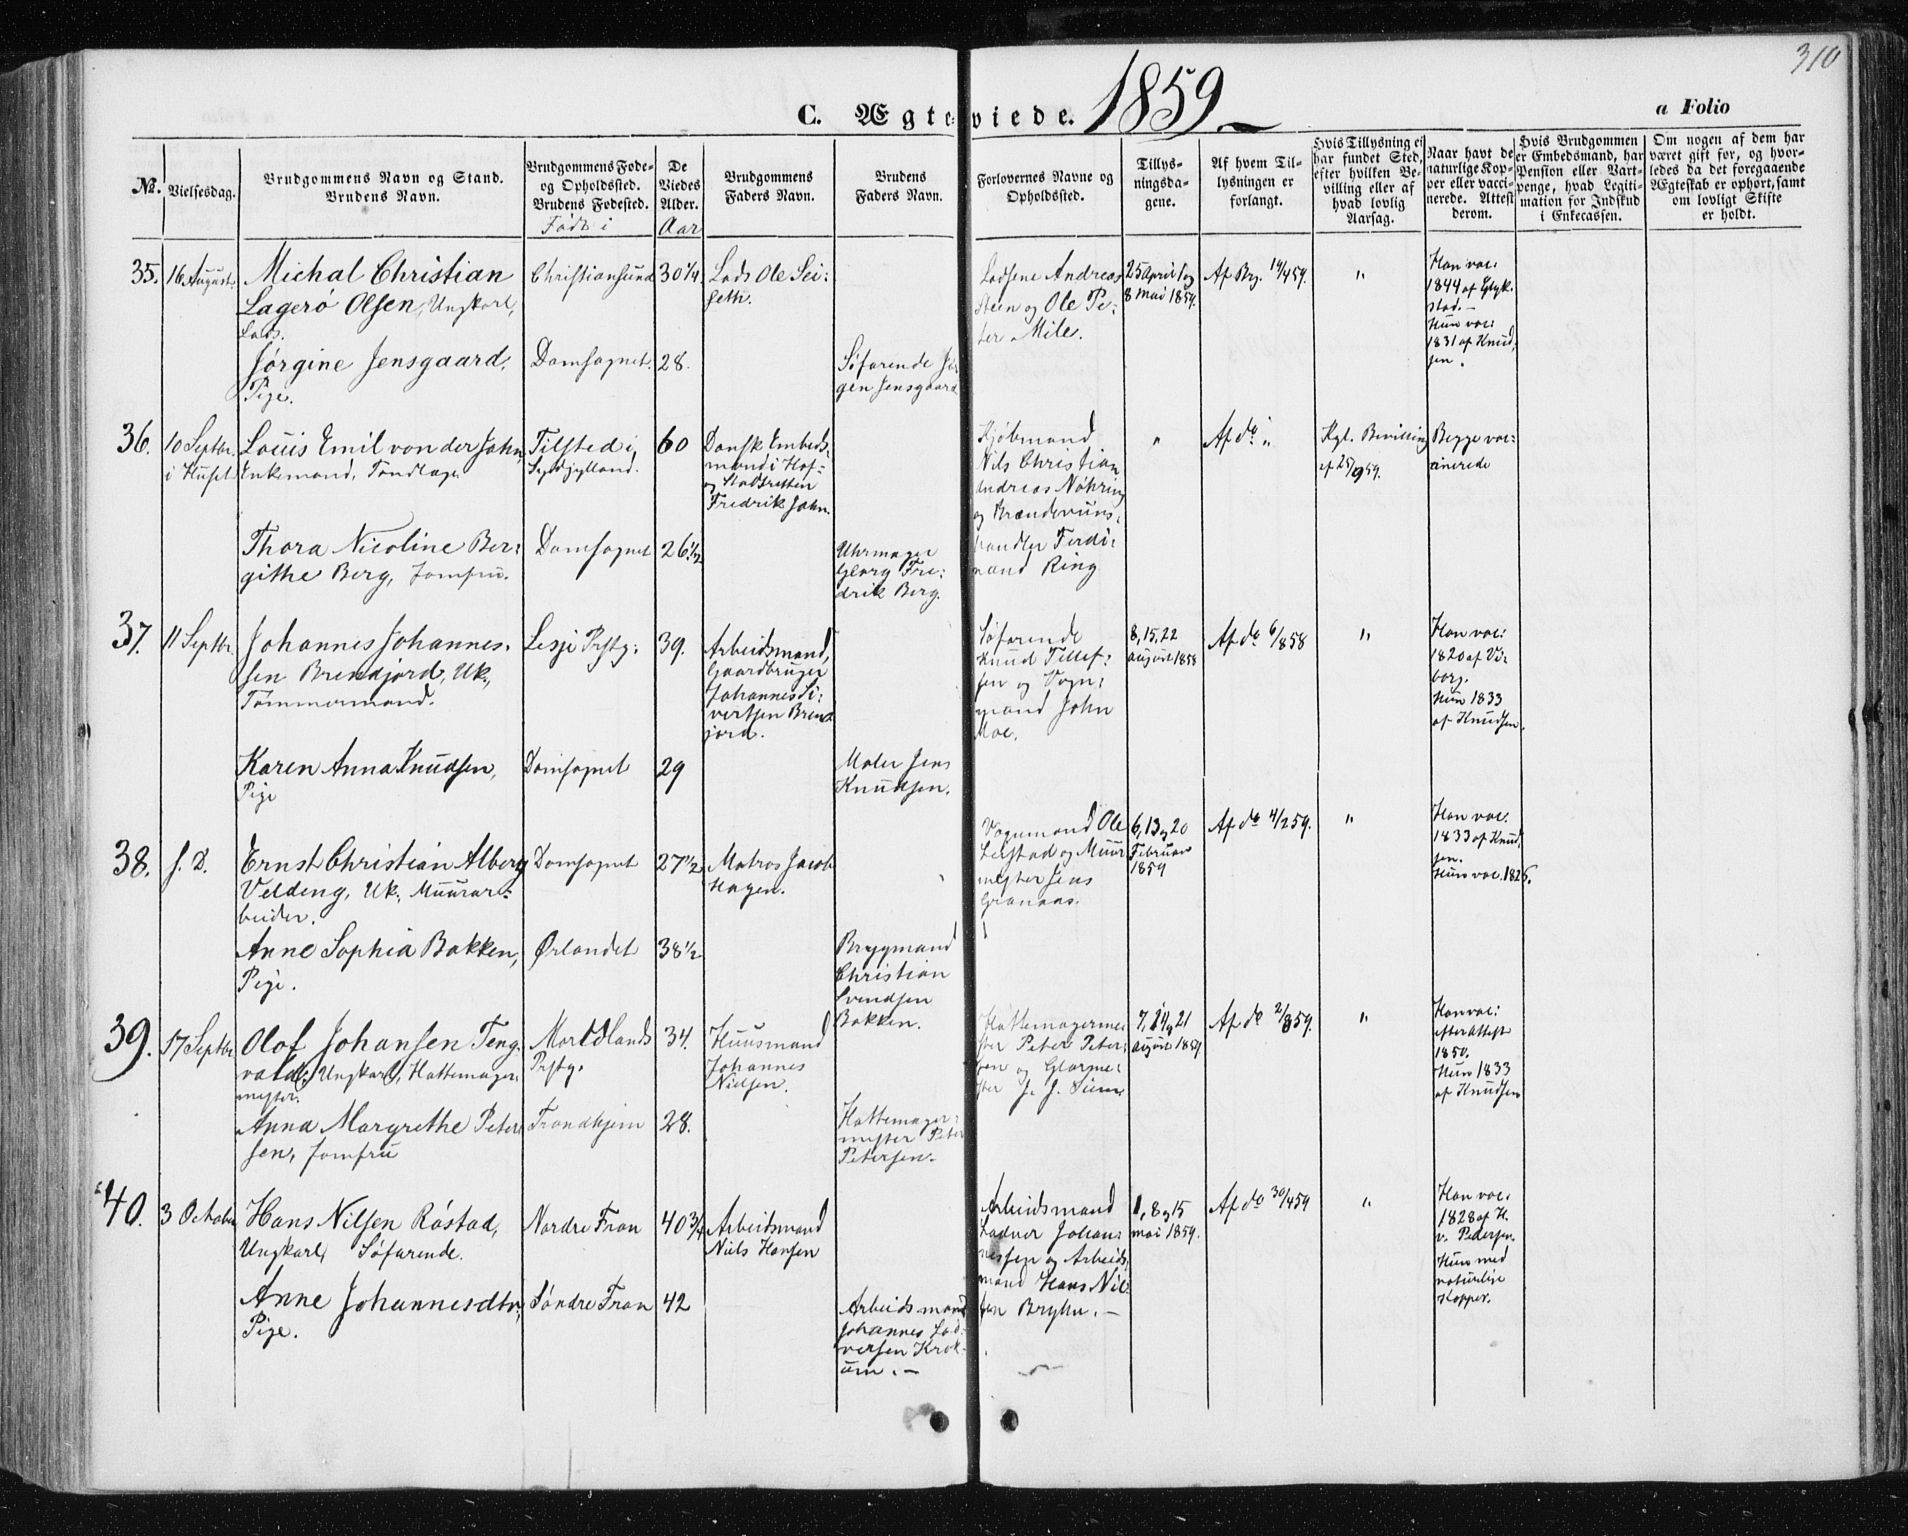 310
C. Ægteviede. 1859.
a Folio
No.
Vielsesdag.
Brudgommens Navn og Stand.
Brudens Navn.
Brudgommens Føde-
og Opholdssted.
Brudens Fødested.
Født i
De
Viedes
Alder.
Aar
Brudgommens
Faders Navn.
Brudens
Faders Navn.
Forlovernes Navne og
Opholdssted.
Tillys-
ningsda-
gene.
Af hvem Til-
lysningen er
forlangt.
Hvis Tillysning ei
har fundet Sted,
efter hvilken Be-
villing eller af
hvad lovlig
Aarsag.
Naar havt de
naturlige Kop-
per eller vacci-
nerede. Attest
derom.
Hvis Brudgommen
er Embedsmand, har
Pension eller Vart-
penge, hvad Legiti-
mation for Indskud
i Enkecassen.
Om nogen af dem har
været gift før, og hvor-
ledes da det foregaaende
Ægteskab er ophørt, samt
om lovligt Skifte
er holdt.
35.
16 August
Michal Christian
Lagerø Olsen, Ungkarl,
Lods.
Christiansund
30 1/4
Lods Ole Sei-
seth.
Lodsene Andreas
Steen og Ole Pe-
ter Mile.
25 April og
8 Mai 1859.
Af Brg. 14/4 59.
"
Han vac:
1844 af Glyk-
stad.-
Hun vac:
1831 af Knud-
sen.
Jørgine Jensgaard,
Pige.
Domsognet.
28.
Søfarende Jør
gen Jensgaard
36.
10 Septbr.
i Huset
Louis Emil von der Jahn,
Enkemand, Tandlæge
Tilsted i
Sydjylland.
60
Dansk Embeds-
mand i Hof-
og Stadsretten
Fredrik Jahn.
Kjøbmand
Nils Christian
Andreas Nøhring
og Brændeviins-
handler Ferdi-
nand Ring
"
Af do "
Kgl. Bevilling
af 25/9 59.
Begge vac-
cinerede
Thora Nicoline Ber-
githe Berg, Jomfru.
Domsognet
26 1/2
Uhrmager
Georg Fre-
drik Berg.
37.
11 Septbr.
Johannes Johannes-
sen Brendjord, Uk.,
Tømmermand.
Lesje Prstg:
39.
Arbeidsmand,
Gaardbruger
Johannes Si-
vertsen Brend
jord.
Søfarende
Knud Tellef-
sen og Vogn-
mand John
Moe.
8, 15, 22
august 1858
Af do 6/8 58
"
Han vac:
1820 af Vi-
borg.
Hun 1833
af Knudsen.
Karen Anna Knudsen,
Pige
Domsognet
29
Maler Jens
Knudsen.
38.
s. D.
Ernst Christian Alberg
Velding, Uk. Muurar-
beider.
Domsognet
27 1/2
Matros Jacob
Hagen.
Vognmand Ole
Leistad og Muur
mester Jens
Granaas.
6, 13 og 20
Februar
1859
Af do 4/2 59.
"
Han vac.
1833 af Knud-
sen.
Hun vac. 1826.
Anne Sophia Bakken,
Pige.
Ørlandet
38 1/2
Brygmand
Christian
Svendsen
Bakken.
39.
17 Septbr
Olof Johansen Teng-
vald, Ungkarl, Hattemager-
mester.
Prstg.
34.
Huusmand
Johannes
Nielsen.
Hattemagerme-
ster Peter Peter-
sen og Glarme-
ster J. J. Siem
7, 14 og 21
august 1859
Af do 2/8 59.
"
Han vac:
efter Attest
1850.
Hun 1833
af Knudsen
Anna Margrethe Peter
sen, Jomfru
Trondhjem
28.
Hattemager-
mester Peter
Petersen.
40.
3 October
Hans Nilsen Røstad,
Ungkarl, Søfarende.
Nordre Fron
40 3/4
Arbeidsmand
Niels Hansen
Arbeidsmand
Ladver Johan-
nessen og Arbeids-
mand Hans Nil-
sen Bryhn.-
1, 8 og 15
mai 1859.
Af do 30/4 59
"
Han vac.
1828 af H.
v. Pedersen.
Hun med
naturlige
Kopper.
Anne Johannesdtr,
Pige.
Søndre Fron
42
Arbeidsmand
Johannes Lad-
versen Krok-
um.-